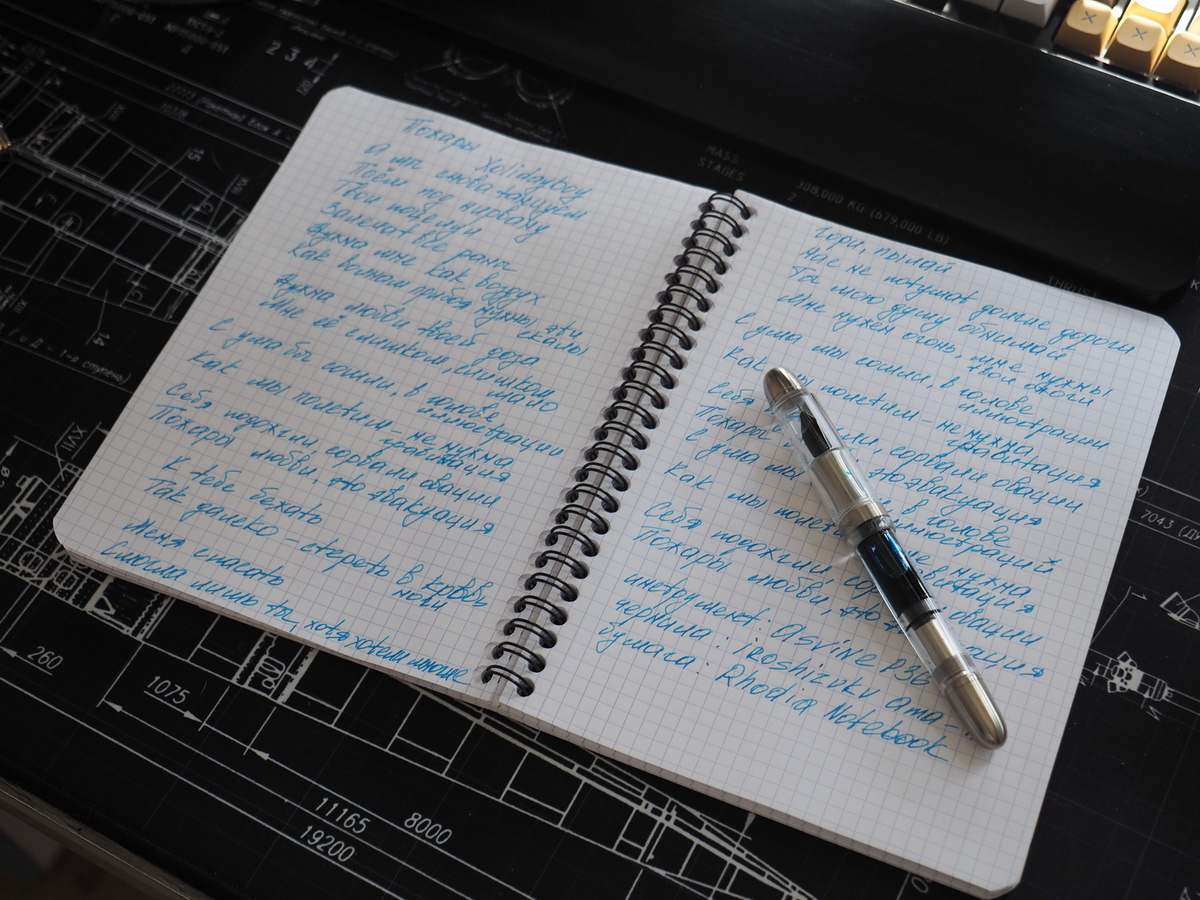 Пожары Xolidayboy
А мы снова танцуем
Поём под нирвану
Твои поцелуи
Залечат все раны
Нужна мне как воздух
Как волнам прибоя нужны эти
скалы
Нужна любви твоей доза
Мне её слишком, слишком
мало
С ума бы сошли, в голове
иллюстрации
Как мы полетим - не нужна
гравитация
Себя подожгли сорвали овации
Пожары любви, это эвакуация
К тебе бежать
Так далеко - стереть в кровь
ноги
Меня спасать
Смогла лишь ты, хотя хотели многие
Гори, пылай
Нас не потушат долгие дороги
Ты мою душу обнимай
Мне нужен огонь, мне нужны
твои ожоги
С ума мы сошли, в голове
иллюстрации
Как полетим - не нужна
гравитация
Себя сорвали овации
Пожары это эвакуация
С ума мы в голове
иллюстраций
Как мы нужна
Себя подожгли овации
Пожары любви, это
инструмент: Asvine P36
чернила: iroshizuku ama-
бумага: Rhodia Notebook
MASS
STAGES
308,000 KG (679,000 LB)
2
THRUST
2 3 4
10775
15
14
XVII
260
1075
11165
8000
19200
7043